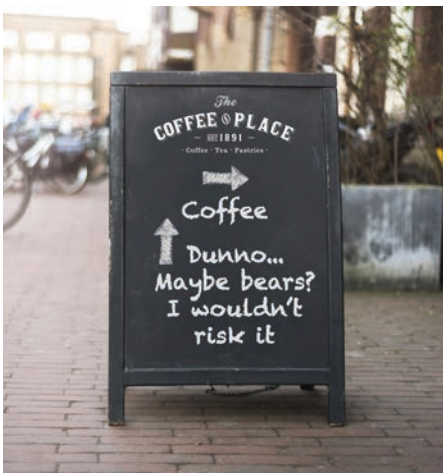 The
COFFEE PLACE
EST 1891
Coffee · Tea · Pastries
Coffee
Dunno...
Maybe bears?
I wouldn't
risk it